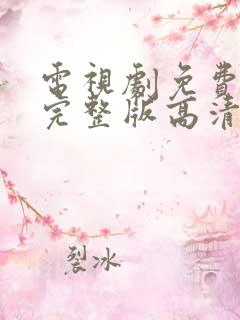 電視劇免費
完整版高清
裂冰